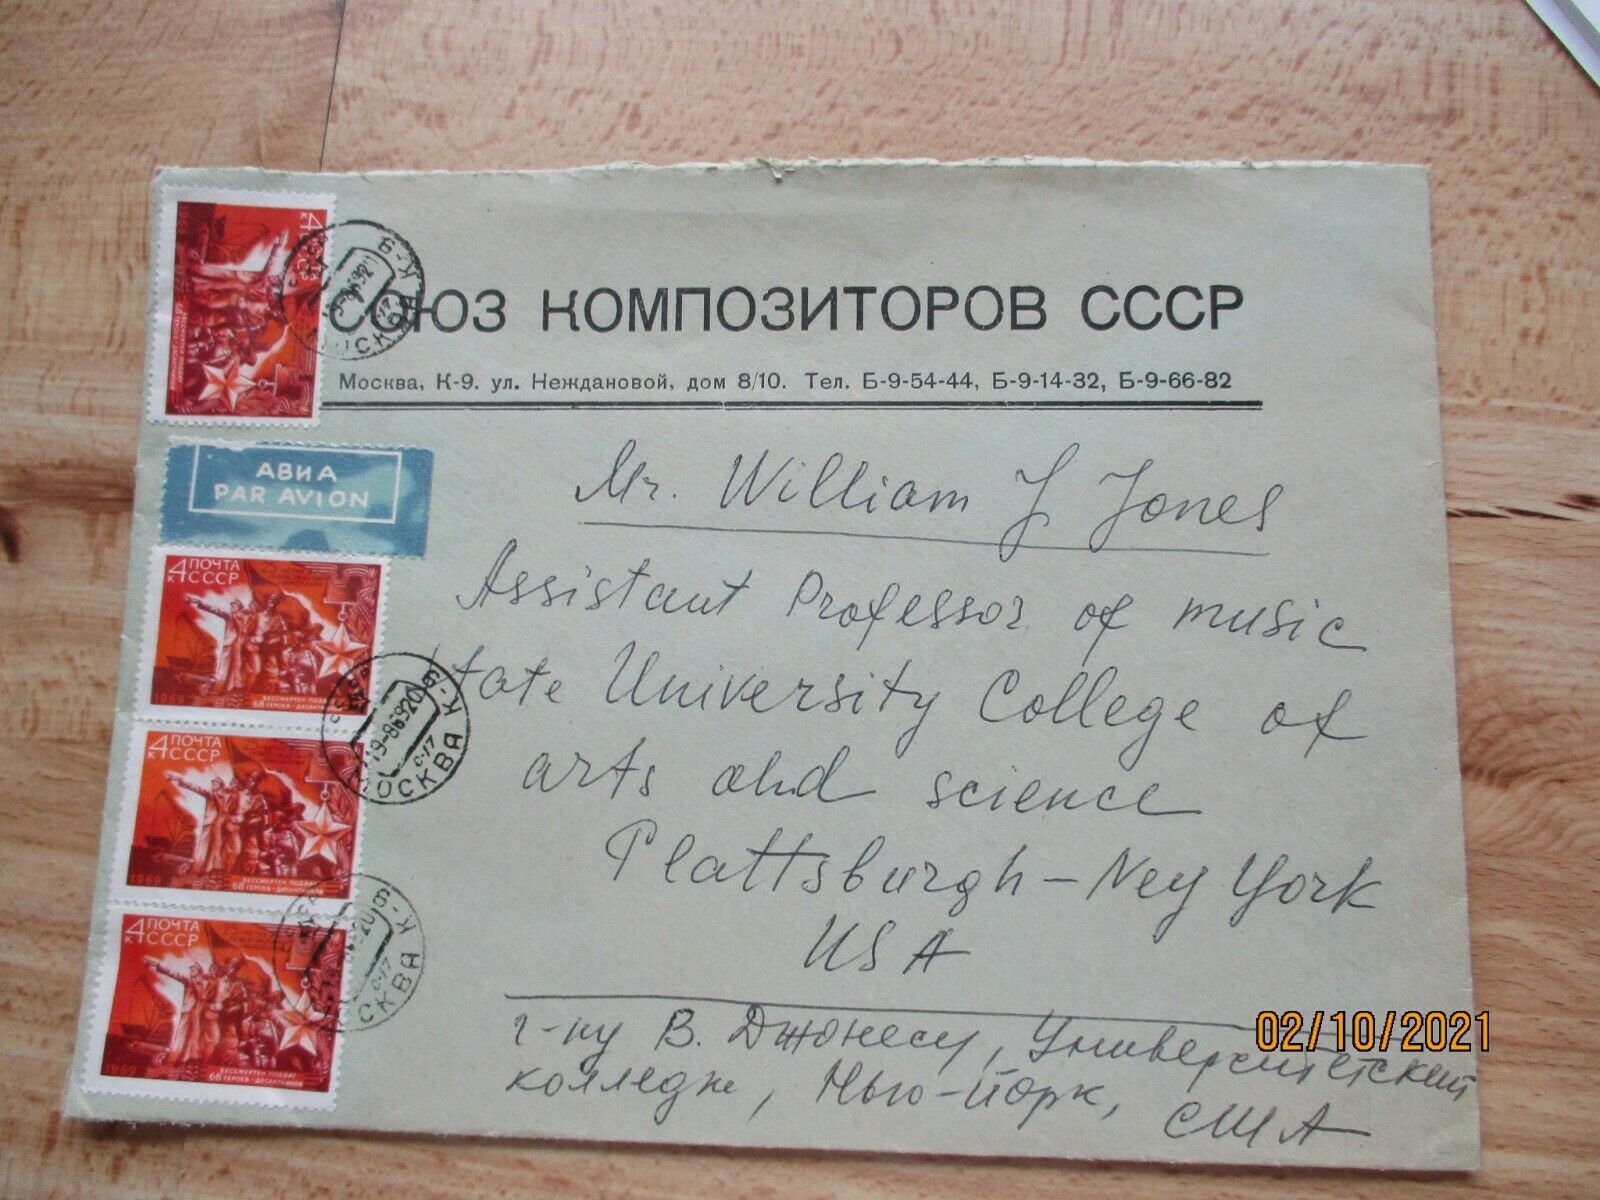 СОЮЗ КОМПОЗИТОРОВ СССР
Москва, К-9. ул. Неждановой, дом 8/10. Тел. Б-9-54-44, Б-9-14-32, Б-9-66-82
АВИА
PAR AVION
Mr. William J Jones
Assistant Professor of music
State University College of
arts and science
Plattsburgh - Ney York
USA
г-ну В. Джонесу, Университетский
колледж, Нью-Йорк,
США
4 К ПОЧТА
СССР
1969
БЕССМЕРТЕН ПОДВИГ
68 ГЕРОЕВ-ДЕСАНТНИКОВ
4 К ПОЧТА
СССР
1969
БЕССМЕРТЕН ПОДВИГ
68 ГЕРОЕВ-ДЕСАНТНИКОВ
4 К ПОЧТА
СССР
1969
БЕССМЕРТЕН ПОДВИГ
68 ГЕРОЕВ-ДЕСАНТНИКОВ
4 К
БЕССМЕРТЕН ПОДВИГ
68 ГЕРОЕВ-ДЕСАНТНИКОВ
МОСКВА К-9
МОСКВА К-9
МОСКВА К-9
02/10/2021